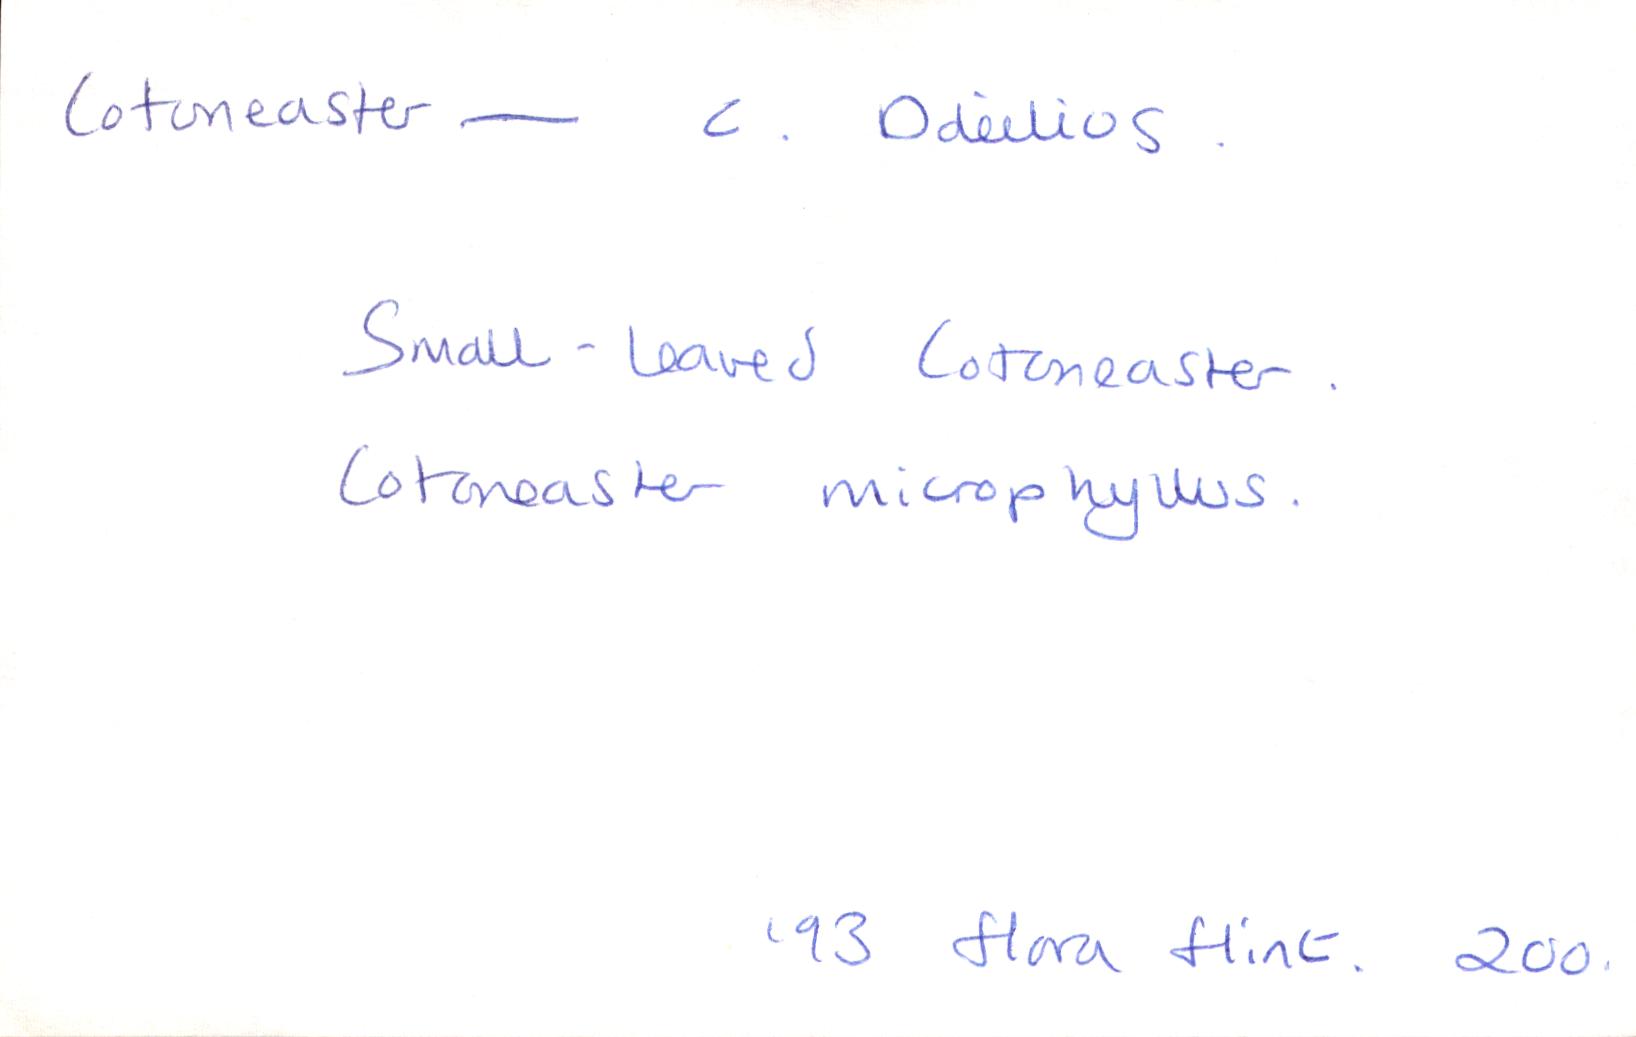 Cotoneaster — C. Odeilios.
Small-leaved Cotoneaster.
Cotoneaster microphyllus.
'93 Flora Flint. 200.